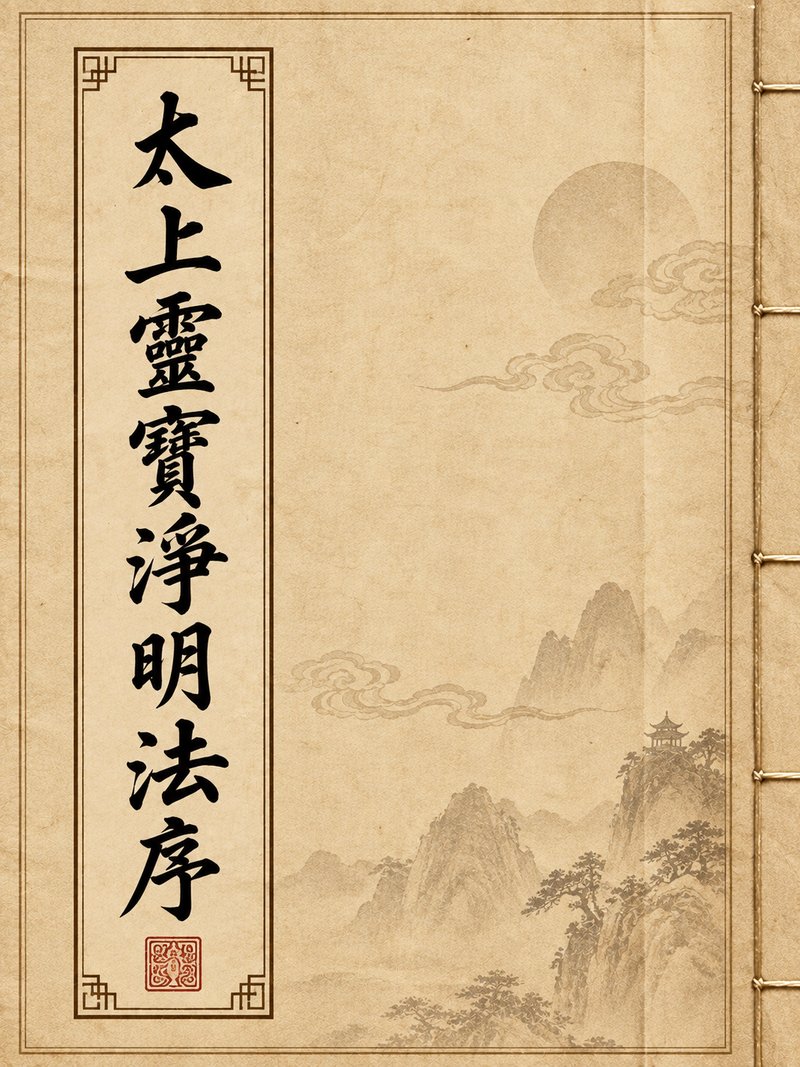 太上靈寶淨明法序